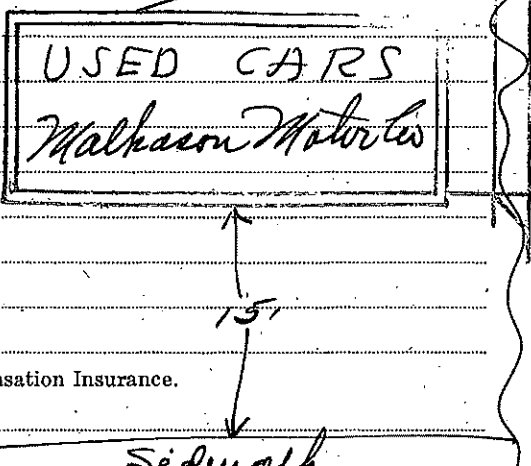 USED CARS
Malkason Motor Co
15'
nsation Insurance.
Sidewalk